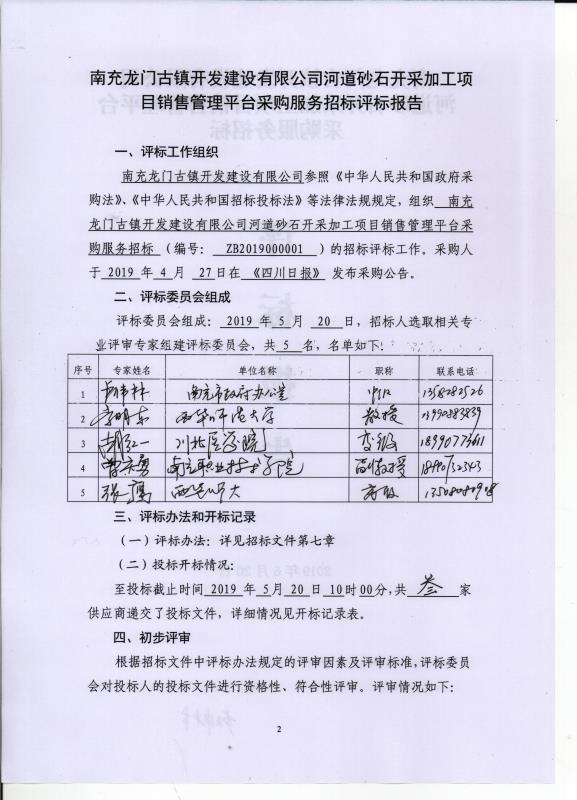 南充龙门古镇开发建设有限公司河道砂石开采加工项
目销售管理平台采购服务招标评标报告
一、评标工作组织
南充龙门古镇开发建设有限公司参照《中华人民共和国政府采
购法》、《中华人民共和国招标投标法》等法律法规规定，组织 南充
龙门古镇开发建设有限公司河道砂石开采加工项目销售管理平台采
购服务招标 （编号： ZB2019000001 ）的招标评标工作。采购人
于 2019 年 4 月 27 日在 《四川日报》 发布采购公告。
二、评标委员会组成
评标委员会组成： 2019 年 5 月 20 日，招标人选取相关专
业评审专家组建评标委员会，共 5 名，名单如下：
序号 专家姓名 单位名称 职称 联系电话
1 南充市政府办公室
2 西华师范大学 教授
3 胡红一 川北医学院
4 南充职业技术学院 副教授
5 张鹰 西华师大
三、评标办法和开标记录
（一）评标办法：详见招标文件第七章
（二）投标开标情况：
至投标截止时间 2019 年 5 月 20 日 10 时 00 分，共 叁 家
供应商递交了投标文件，详细情况见开标记录表。
四、初步评审
根据招标文件中评标办法规定的评审因素及评审标准，评标委员
会对投标人的投标文件进行资格性、符合性评审。评审情况如下：
2